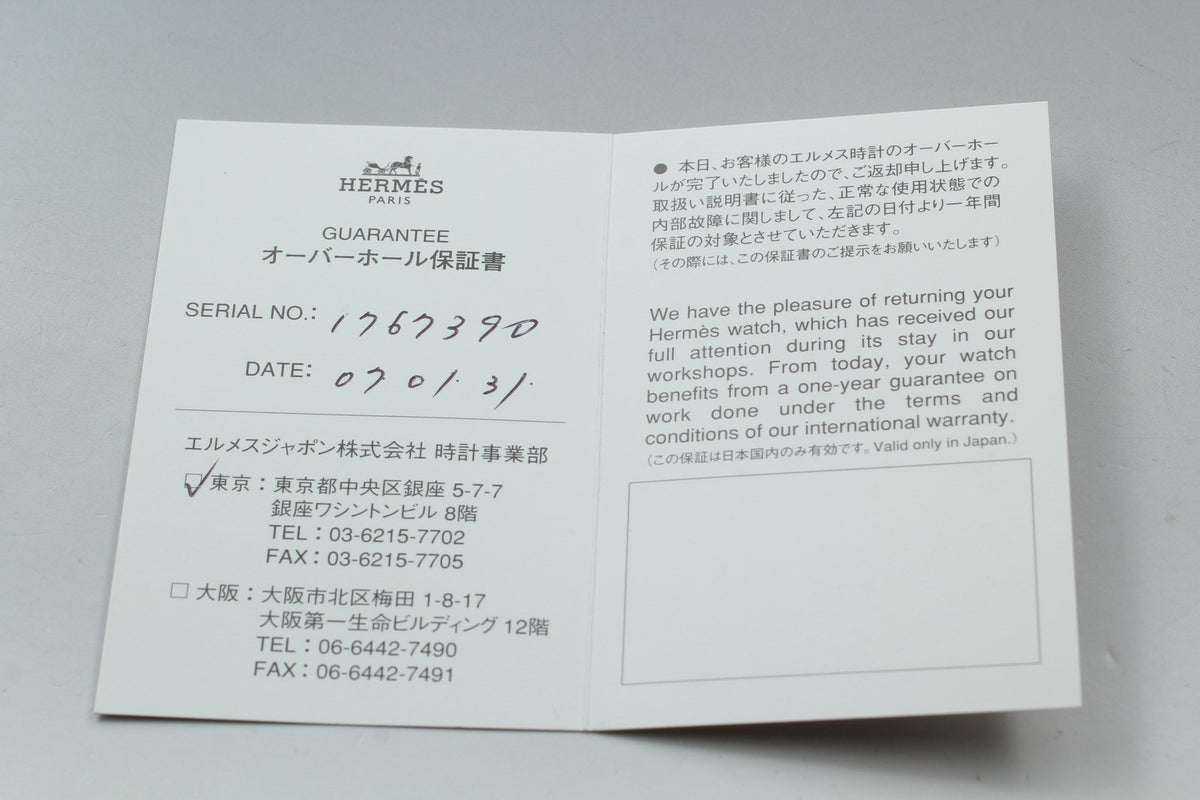 HERMÈS
PARIS
GUARANTEE
オーバーホール保証書
SERIAL NO.: 1767390
DATE: 07.01.31.
エルメスジャポン株式会社 時計事業部
東京：東京都中央区銀座 5-7-7
銀座ワシントンビル 8階
TEL：03-6215-7702
FAX：03-6215-7705
□ 大阪：大阪市北区梅田 1-8-17
大阪第一生命ビルディング 12階
TEL：06-6442-7490
FAX：06-6442-7491
● 本日、お客様のエルメス時計のオーバーホー
ルが完了いたしましたので、ご返却申し上げます。
取扱い説明書に従った、正常な使用状態での
内部故障に関しまして、左記の日付より一年間
保証の対象とさせていただきます。
（その際には、この保証書のご提示をお願いいたします）
We have the pleasure of returning your
Hermès watch, which has received our
full attention during its stay in our
workshops. From today, your watch
benefits from a one-year guarantee on
work done under the terms and
conditions of our international warranty.
（この保証は日本国内のみ有効です。Valid only in Japan.）